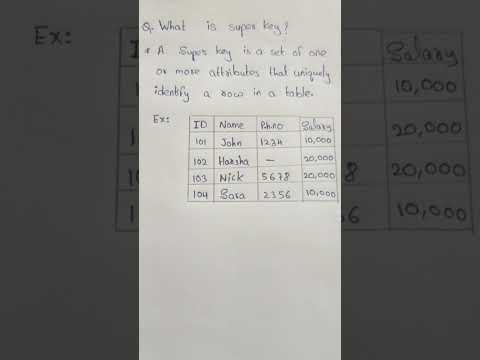 Q. What is super key?
* A Super key is a set of one
or more attributes that uniquely
identify a row in a table.
Ex:
ID Name Ph.no Salary
101 John 1234 10,000
102 Harsha — 20,000
103 Nick 5678 20,000
104 Sara 2356 10,000
Ex:
Salary
10,000
20,000
8 20,000
6 10,000